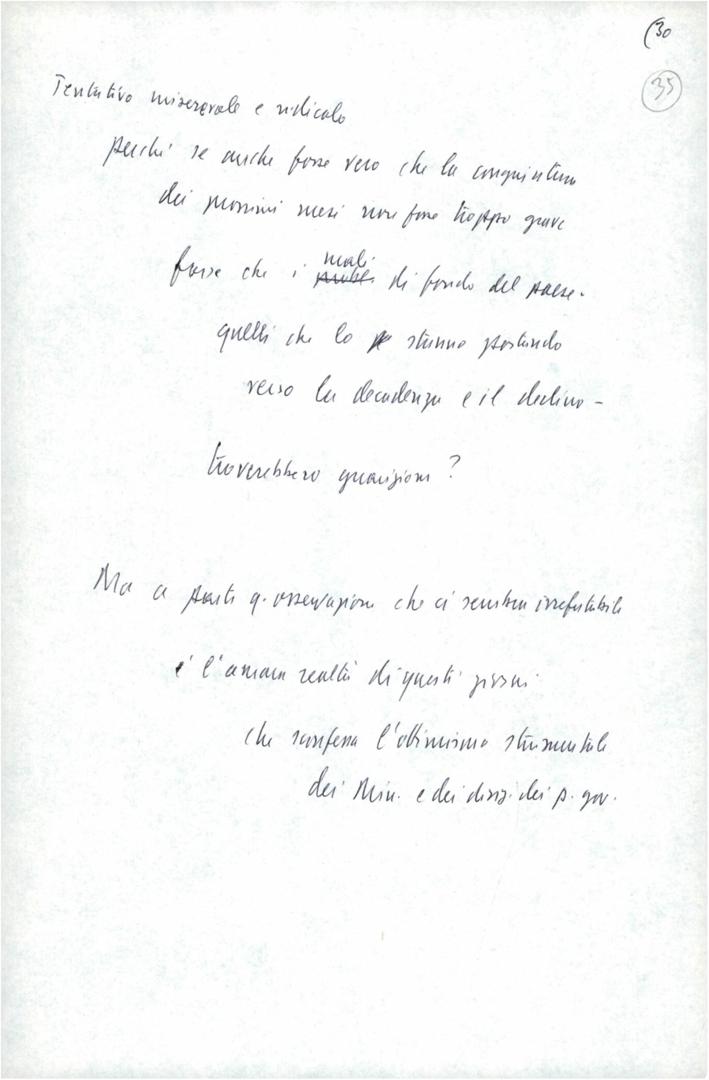 (30
35
Tentativo miserevole e ridicolo
perché se anche fosse vero che la congiuntura
dei prossimi mesi non fosse troppo grave
forse che i mali di fondo del paese -
quelli che lo stanno portando
verso la decadenza e il declino -
troverebbero guarigione ?
Ma a parte q. osservazione che ci sembra irrefutabile
è l'amara realtà di questi giorni
che sconfessa l'ottimismo strumentale
dei Min. e dei dirig. dei p. gov.